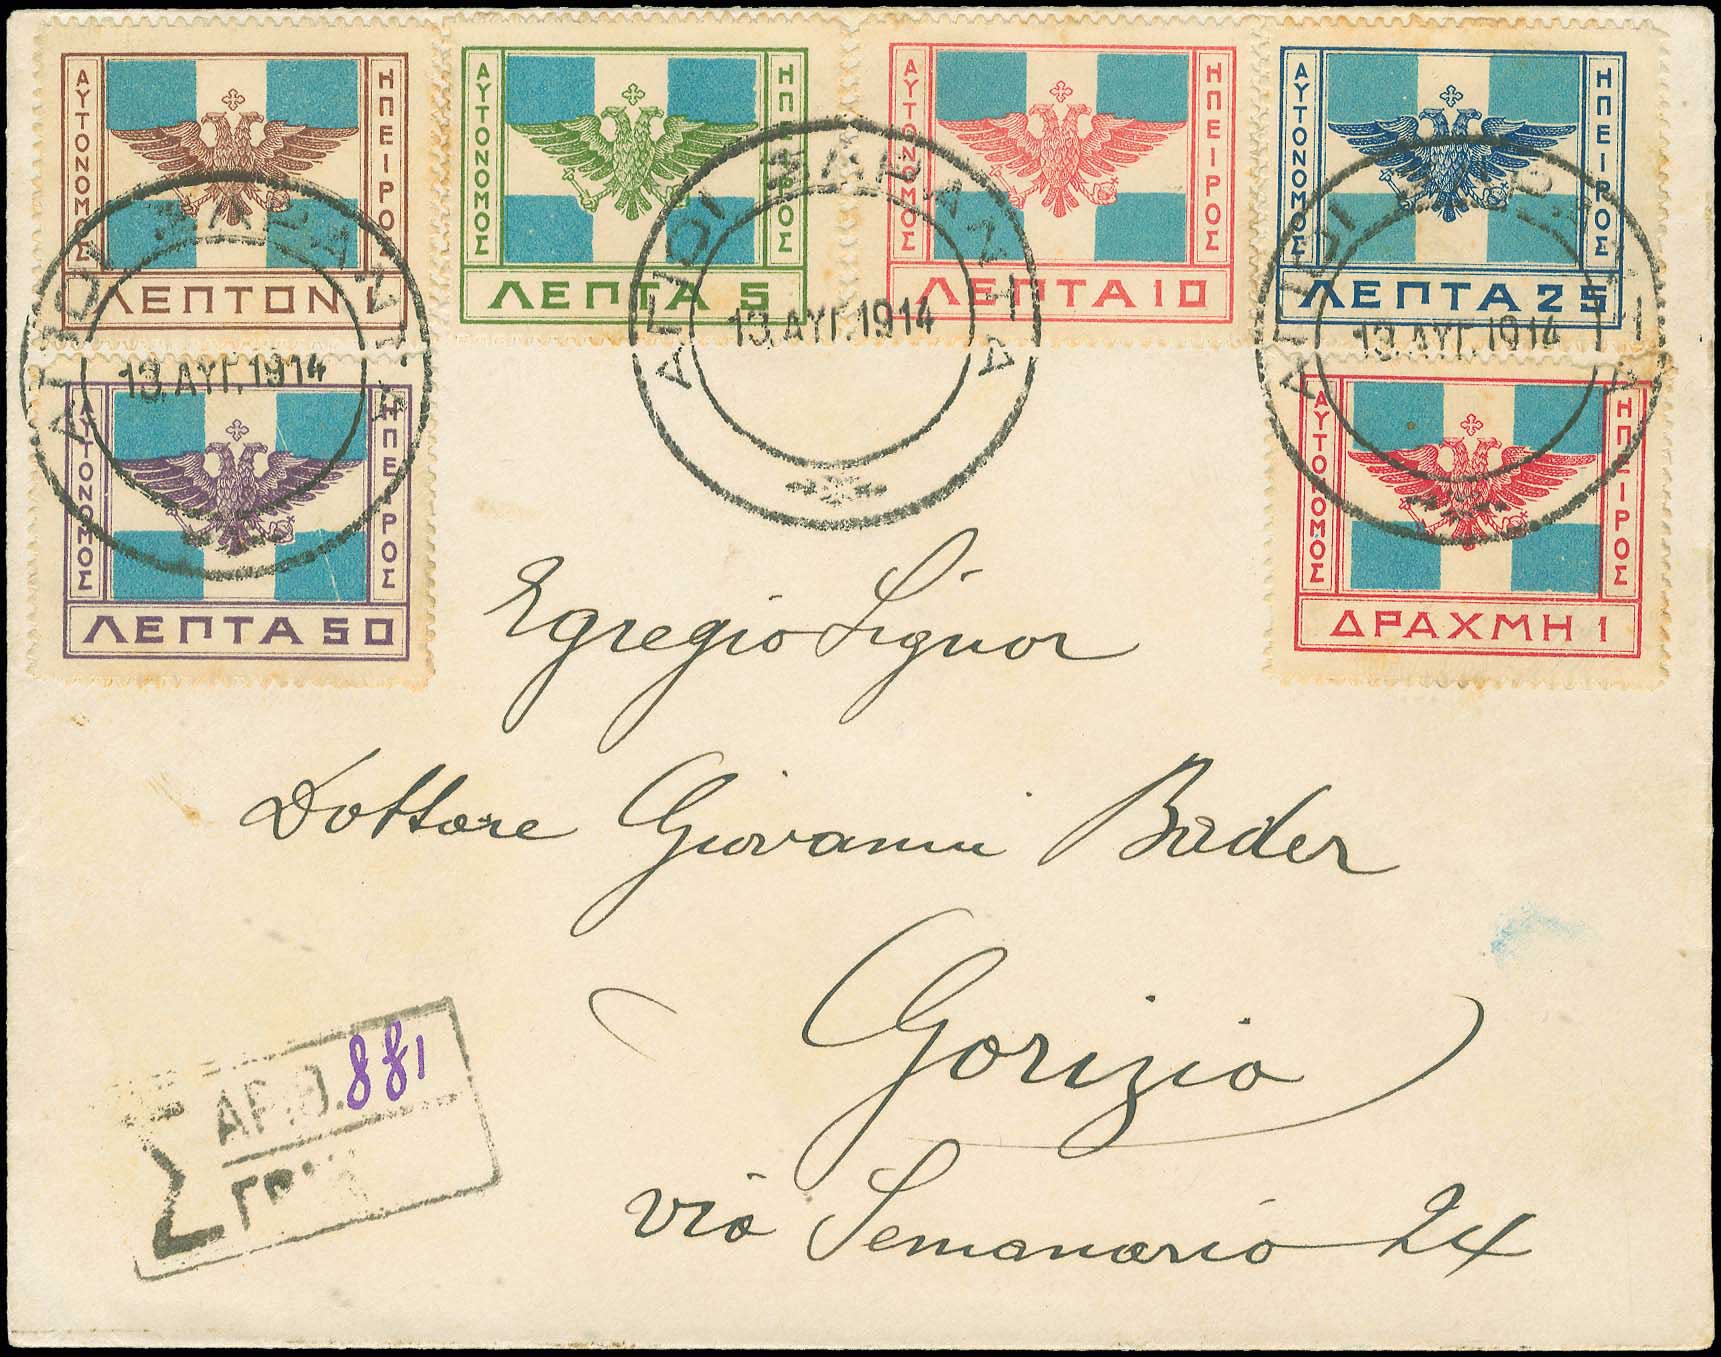 ΑΥΤΟΝΟΜΟΣ
ΗΠΕΙΡΟΣ
ΛΕΠΤΟΝ 1
ΑΥΤΟΝΟΜΟΣ
ΗΠΕΙΡΟΣ
ΛΕΠΤΑ 5
ΑΥΤΟΝΟΜΟΣ
ΗΠΕΙΡΟΣ
ΛΕΠΤΑ 10
ΑΥΤΟΝΟΜΟΣ
ΗΠΕΙΡΟΣ
ΛΕΠΤΑ 25
ΑΓΙΟΙ ΣΑΡΑΝΤΑ
13.ΑΥΓ.1914
ΑΓΙΟΙ ΣΑΡΑΝΤΑ
13.ΑΥΓ.1914
ΑΓΙΟΙ ΣΑΡΑΝΤΑ
13.ΑΥΓ.1914
ΑΥΤΟΝΟΜΟΣ
ΗΠΕΙΡΟΣ
ΛΕΠΤΑ 50
ΑΥΤΟΝΟΜΟΣ
ΗΠΕΙΡΟΣ
ΔΡΑΧΜΗ 1
Egregio Signor
Dottore Giovanni Bader
Gorizia
via Semanario 24
Σ ΑΡΙΘ. 881